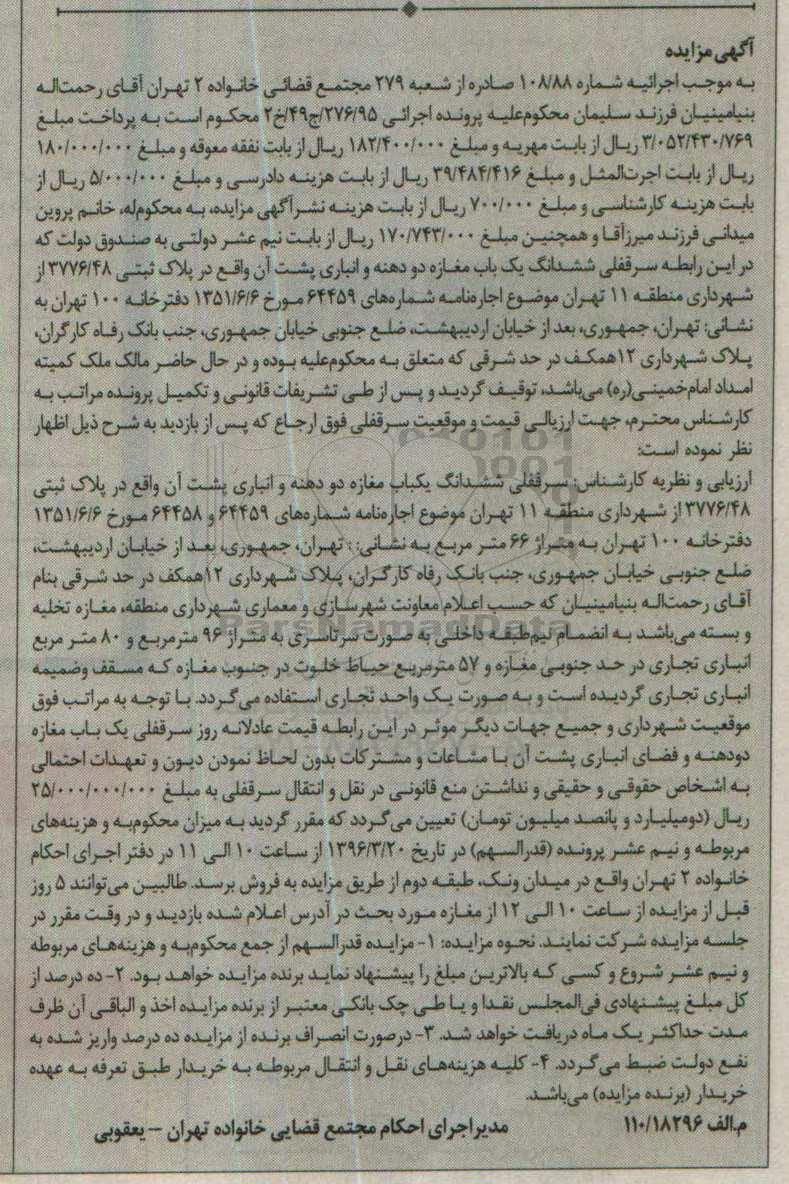 آگهی مزایده
به موجب اجرائیه شماره ۱۰۸/۸۸ صادره از شعبه ۲۷۹ مجتمع قضائی خانواده ۲ تهران آقای رحمت‌اله
بنیامینیان فرزند سلیمان محکوم‌علیه پرونده اجرائی ۲۷۶/۹۵/ج۴۹/خ۲ محکوم است به پرداخت مبلغ
۳/۰۵۲/۴۳۰/۷۶۹ ریال از بابت مهریه و مبلغ ۱۸۲/۴۰۰/۰۰۰ ریال از بابت نفقه معوقه و مبلغ ۱۸۰/۰۰۰/۰۰۰
ریال از بابت اجرت‌المثل و مبلغ ۳۹/۴۸۴/۴۱۶ ریال از بابت هزینه دادرسی و مبلغ ۵/۰۰۰/۰۰۰ ریال از
بابت هزینه کارشناسی و مبلغ ۷۰۰/۰۰۰ ریال از بابت هزینه نشر آگهی مزایده، به محکوم‌له، خانم پروین
میدانی فرزند میرزآقا و همچنین مبلغ ۱۷۰/۷۴۳/۰۰۰ ریال از بابت نیم عشر دولتی به صندوق دولت که
در این رابطه سرقفلی ششدانگ یک باب مغازه دو دهنه و انباری پشت آن واقع در پلاک ثبتی ۳۷۷۶/۴۸ از
شهرداری منطقه ۱۱ تهران موضوع اجاره‌نامه شماره‌های ۶۴۴۵۹ مورخ ۱۳۵۱/۶/۶ دفترخانه ۱۰۰ تهران به
نشانی: تهران، جمهوری، بعد از خیابان اردیبهشت، ضلع جنوبی خیابان جمهوری، جنب بانک رفاه کارگران،
پلاک شهرداری ۱۲همکف در حد شرقی که متعلق به محکوم‌علیه بوده و در حال حاضر مالک ملک کمیته
امداد امام‌خمینی(ره) می‌باشد، توقیف گردید و پس از طی تشریفات قانونی و تکمیل پرونده مراتب به
کارشناس محترم، جهت ارزیالی قیمت و موقعیت سرقفلی فوق ارجاع که پس از بازدید به شرح ذیل اظهار
نظر نموده است:
ارزیابی و نظریه کارشناس: سرقفلی ششدانگ یکباب مغازه دو دهنه و انباری پشت آن واقع در پلاک ثبتی
۳۷۷۶/۴۸ از شهرداری منطقه ۱۱ تهران موضوع اجاره‌نامه شماره‌های ۶۴۴۵۹ و ۶۴۴۵۸ مورخ ۱۳۵۱/۶/۶
دفترخانه ۱۰۰ تهران به متراژ ۶۶ متر مربع به نشانی: تهران، جمهوری، بعد از خیابان اردیبهشت،
ضلع جنوبی خیابان جمهوری، جنب بانک رفاه کارگران، پلاک شهرداری ۱۲همکف در حد شرقی بنام
آقای رحمت‌اله بنیامینیان که حسب اعلام معاونت شهرسازی و معماری شهرداری منطقه، مغازه تخلیه
و بسته می‌باشد به انضمام نیم‌طبقه داخلی به صورت سرتاسری به متراژ ۹۶ مترمربع و ۸۰ متر مربع
انباری تجاری در حد جنوبی مغازه و ۵۷ مترمربع حیاط خلوت در جنوب مغازه که مسقف وضمیمه
انباری تجاری گردیده است و به صورت یک واحد تجاری استفاده می‌گردد. با توجه به مراتب فوق
موقعیت شهرداری و جمیع جهات دیگر موثر در این رابطه قیمت عادلانه روز سرقفلی یک باب مغازه
دودهنه و فضای انباری پشت آن با مشاعات و مشترکات بدون لحاظ نمودن دیون و تعهدات احتمالی
به اشخاص حقوقی و حقیقی و نداشتن منع قانونی در نقل و انتقال سرقفلی به مبلغ ۲۵/۰۰۰/۰۰۰/۰۰۰
ریال (دومیلیارد و پانصد میلیون تومان) تعیین می‌گردد که مقرر گردید به میزان محکوم‌به و هزینه‌های
مربوطه و نیم عشر پرونده (قدرالسهم) در تاریخ ۱۳۹۶/۳/۲۰ از ساعت ۱۰ الی ۱۱ در دفتر اجرای احکام
خانواده ۲ تهران واقع در میدان ونک، طبقه دوم از طریق مزایده به فروش برسد. طالبین می‌توانند ۵ روز
قبل از مزایده از ساعت ۱۰ الی ۱۲ از مغازه مورد بحث در آدرس اعلام شده بازدید و در وقت مقرر در
جلسه مزایده شرکت نمایند. نحوه مزایده: ۱- مزایده قدرالسهم از جمع محکوم‌به و هزینه‌های مربوطه
و نیم عشر شروع و کسی که بالاترین مبلغ را پیشنهاد نماید برنده مزایده خواهد بود. ۲- ده درصد از
کل مبلغ پیشنهادی فی‌المجلس نقدا و یا طی چک بانکی معتبر از برنده مزایده اخذ و الباقی آن ظرف
مدت حداکثر یک ماه دریافت خواهد شد. ۳- درصورت انصراف برنده از مزایده ده درصد واریز شده به
نفع دولت ضبط می‌گردد. ۴- کلیه هزینه‌های نقل و انتقال مربوطه به خریدار طبق تعرفه به عهده
خریدار (برنده مزایده) می‌باشد.
م.الف ۱۱۰/۱۸۲۹۶ مدیر اجرای احکام مجتمع قضایی خانواده تهران – یعقوبی
ParsNamadData